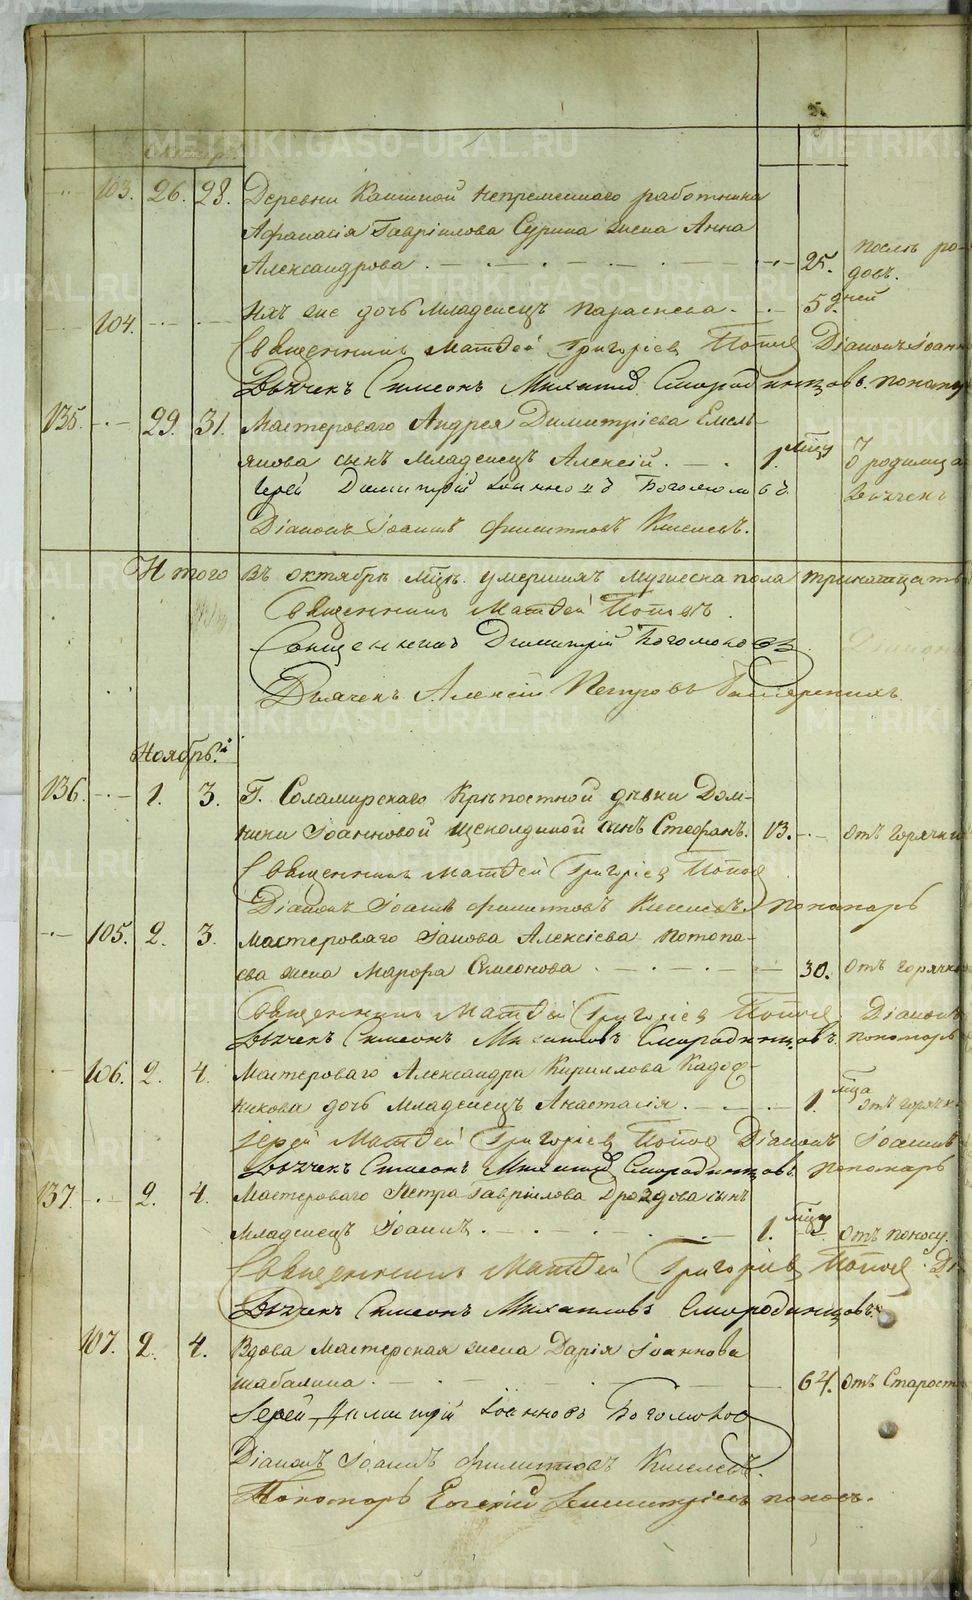 Октябр.
103. 26. 28. Деревни Каминой непременнаго работника
Афанасія Гаврилова Сурина жена Анна
Александрова 25. послѣ ро-
довъ.
104. Ихъ же дочь младенецъ Параскева. 5 дней
Священникъ Матѳей Григоріев Попов Діаконъ Іоанн
Дьячекъ Симеонъ Михаилов Смородинцовъ. понома
135. 29. 31. Мастероваго Андрея Димитріева Емель-
янова сынъ младенецъ Алексій. 1. мцу О родимца
Іерей Димитрій Іоанновъ Боголюбовъ. Дьячекъ
Діаконъ Іоаннъ Филиповъ Киселевъ.
Итого въ октябрѣ мцѣ умершихъ мужеска пола тринатцать
Священникъ Матѳей Поповъ.
Священникъ Димитрій Боголюбовъ Діаконъ
Дьячекъ Алексій Петровъ
Ноябрь.
136. 1. 3. Г. Соламирскаго крѣпостной дѣвки Дом-
ники Іоанновой Щеколдиной сынъ Стефанъ. 13. отъ горячки
Священникъ Матѳей Григоріев Попов
Діаконъ Іоаннъ Филиповъ Киселевъ. пономарь
105. 2. 3. Мастероваго Іакова Алексіева Потопа-
ева жена Марфа Симеонова 30. отъ горячки
Священникъ Матѳей Григоріев Попов Діаконъ
Дьячекъ Симеонъ Михаиловъ Смородинцовъ. пономарь
106. 2. 4. Мастероваго Александра Кириллова Кадоч-
никова дочь младенецъ Анастасія. 1. мца отъ горячк.
Іерей Матѳей Григоріев Попов Діаконъ Іоаннъ
Дьячекъ Симеонъ Михаилов Смородинцовъ. пономарь
137. 2. 4. Мастероваго Петра Гаврилова Дроздова сынъ
младенецъ Іоаннъ. 1. мцу отъ поносу.
Священникъ Матѳей Григоріев Попов Ді
Дьячекъ Симеонъ Михаиловъ Смородинцовъ.
107. 2. 4. Вдова мастерская жена Дарія Іоаннова
Шабалина 64. отъ Старост
Іерей Димитрій Іоанновъ Боголюбов
Діаконъ Іоаннъ Филиповъ Киселевъ.
Пономарь Евгеній Димитріевъ Поповъ.